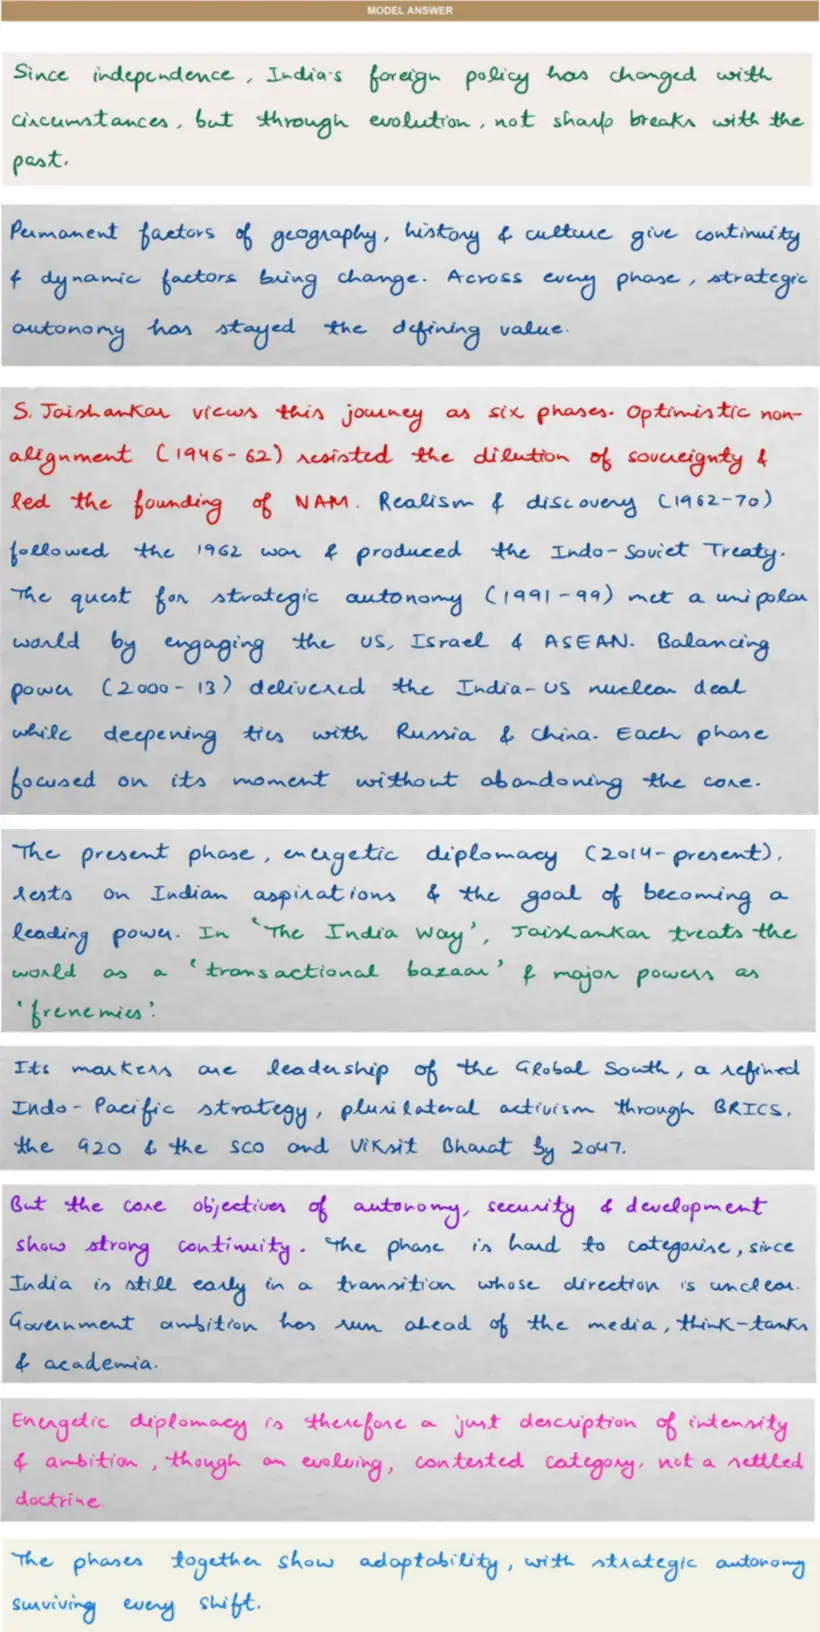 MODEL ANSWER
Since independence, India's foreign policy has changed with
circumstances, but through evolution, not sharp breaks with the
past.
Permanent factors of geography, history & culture give continuity
& dynamic factors bring change. Across every phase, strategic
autonomy has stayed the defining value.
S. Jaishankar views this journey as six phases. Optimistic non-
alignment (1946-62) resisted the dilution of sovereignty &
led the founding of NAM. Realism & discovery (1962-70)
followed the 1962 war & produced the Indo-Soviet Treaty.
The quest for strategic autonomy (1991-99) met a unipolar
world by engaging the US, Israel & ASEAN. Balancing
power (2000-13) delivered the India-US nuclear deal
while deepening ties with Russia & China. Each phase
focused on its moment without abandoning the core.
The present phase, energetic diplomacy (2014-present),
rests on Indian aspirations & the goal of becoming a
leading power. In 'The India Way', Jaishankar treats the
world as a 'transactional bazaar' & major powers as
'frenemies'.
Its markers are leadership of the Global South, a refined
Indo-Pacific strategy, plurilateral activism through BRICS,
the G20 & the SCO and Viksit Bharat by 2047.
But the core objectives of autonomy, security & development
show strong continuity. The phase is hard to categorise, since
India is still early in a transition whose direction is unclear.
Government ambition has run ahead of the media, think-tanks
& academia.
Energetic diplomacy is therefore a just description of intensity
& ambition, though an evolving, contested category, not a settled
doctrine.
The phases together show adaptability, with strategic autonomy
surviving every shift.